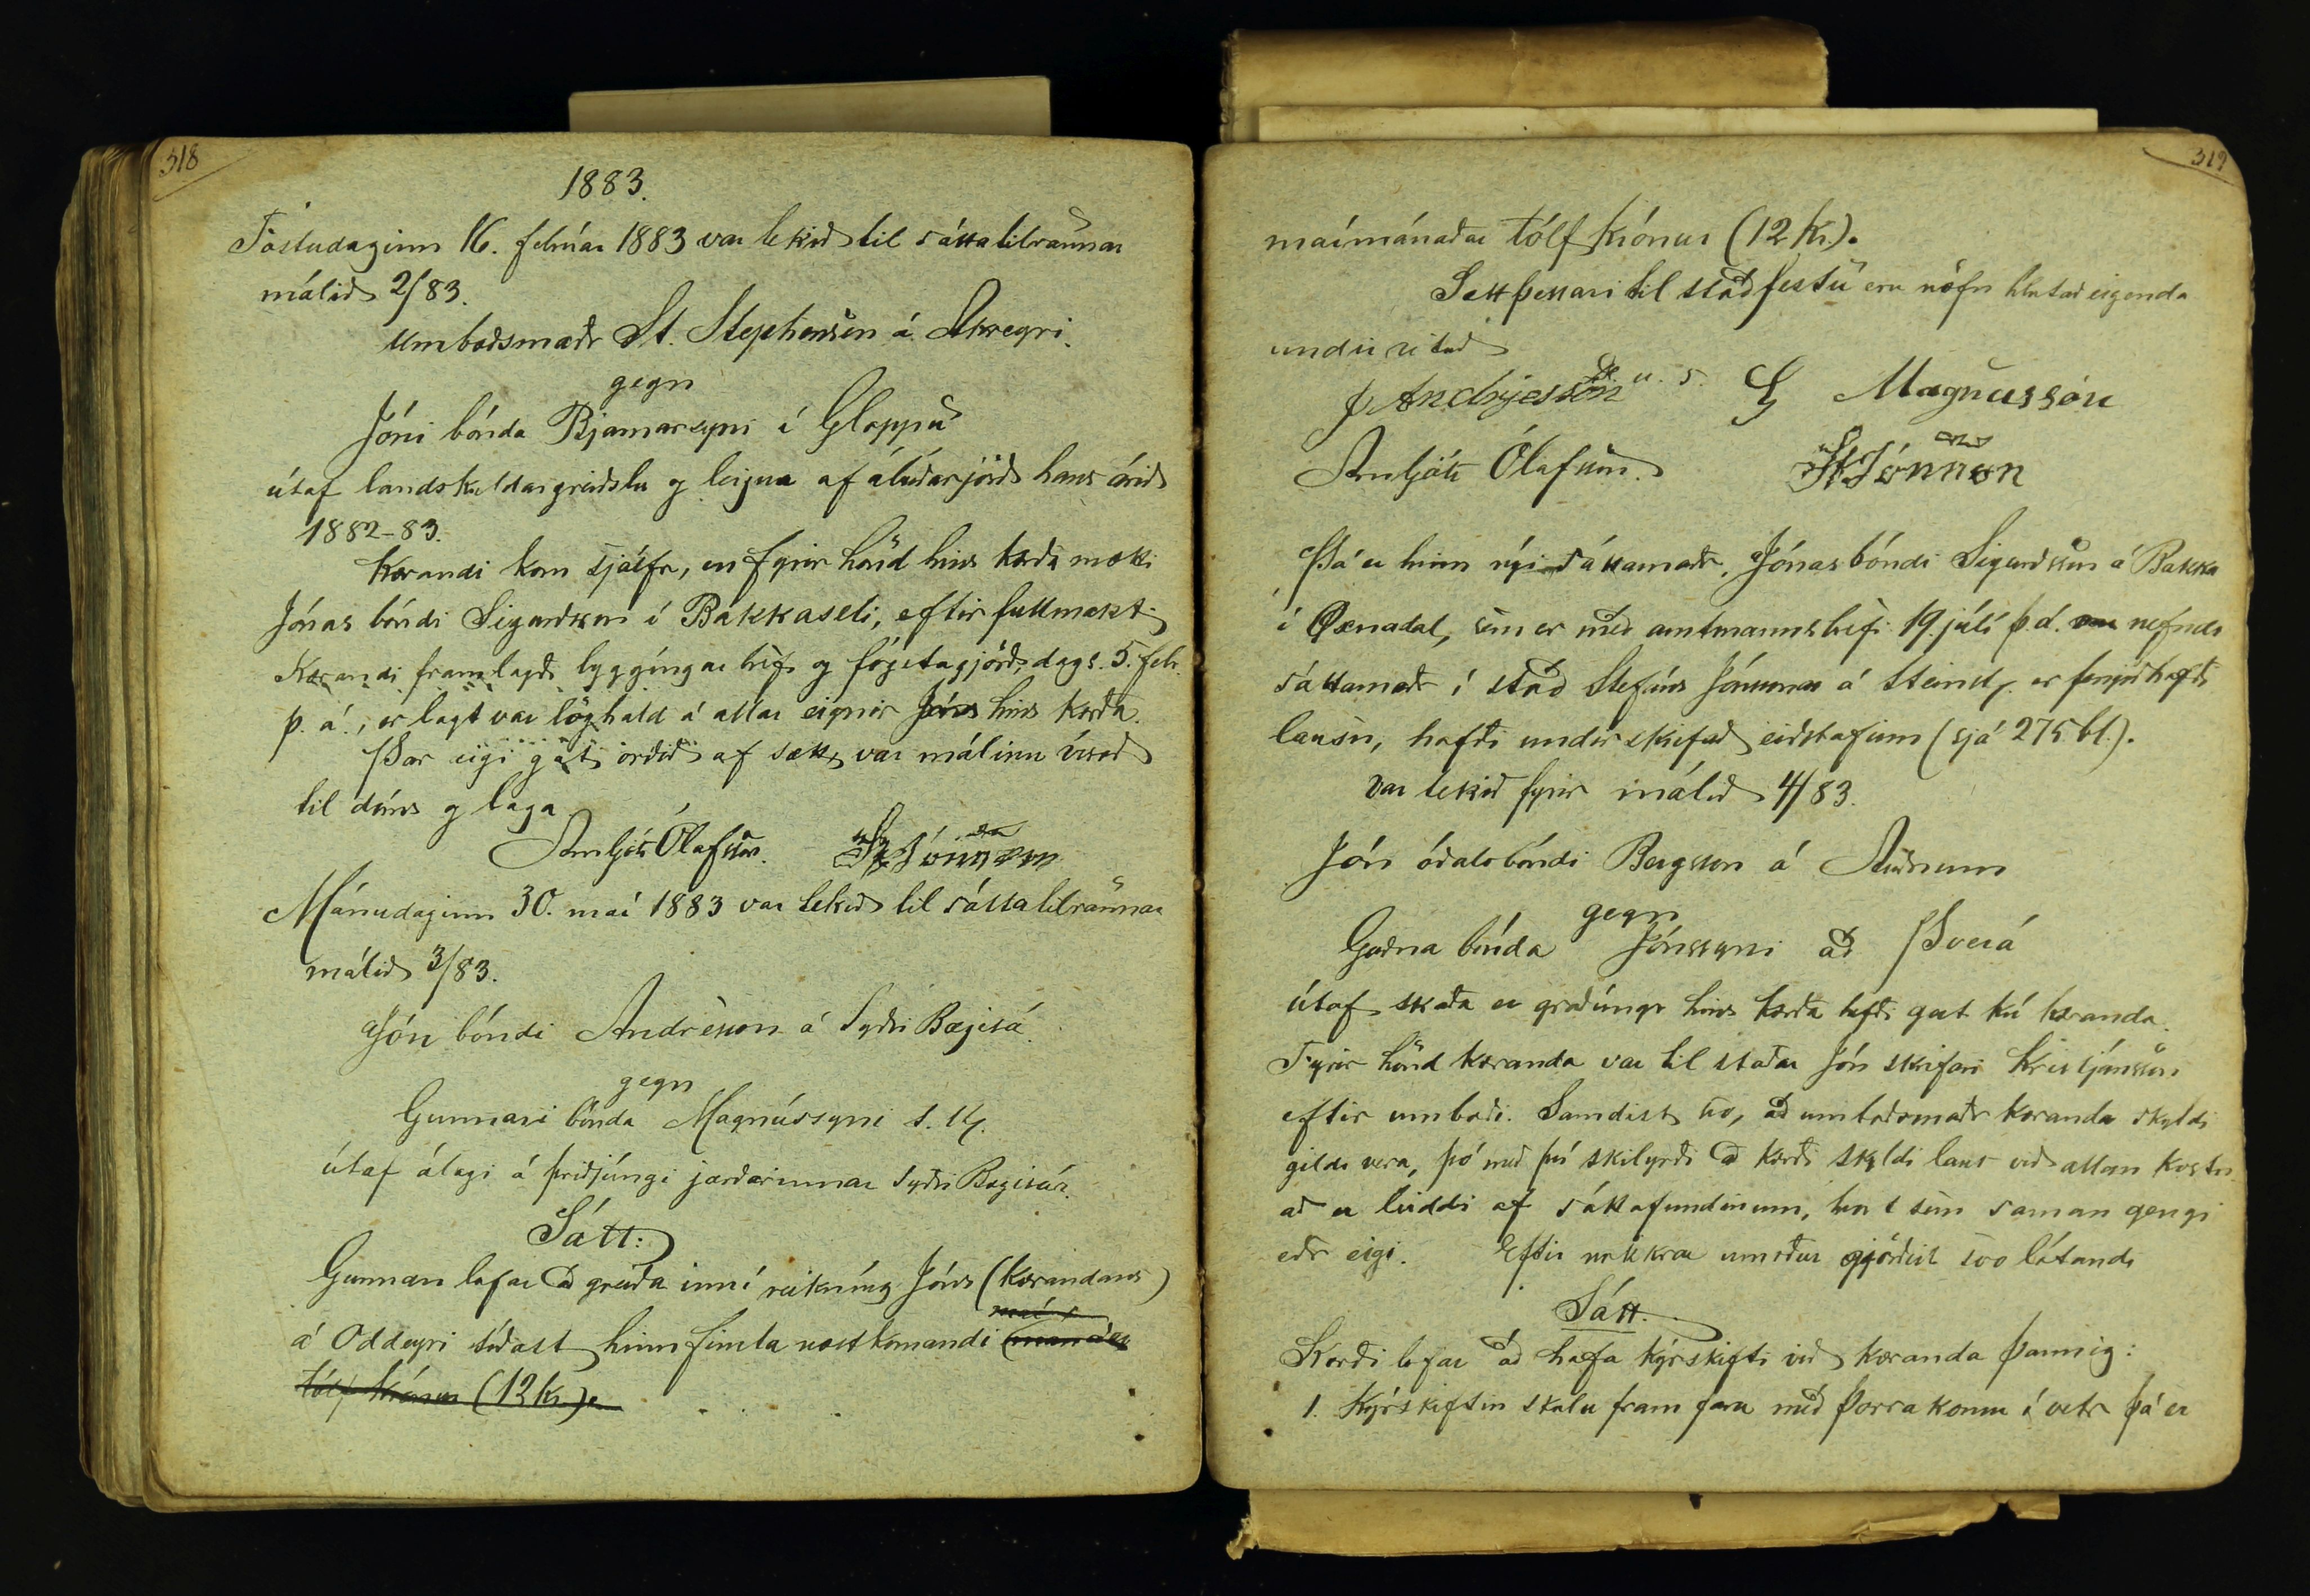 318
1883.
Föstudaginn 16. febrúar 1883 var tekið til sáttatilraunar
málið 2/83.
Umboðsmaðr St. Stephensen á Akreyri
gegn
Jóni bónda Bjarnarsyni í Gloppu
útaf landskuldargreiðslu og leigna af ábúðarjörð hans árið
1882-83.
Kærandi kom sjálfr, en fyrir hönd hins kærða mætti
Jónas bóndi Sigurðsson í Bakkaseli, eftir fullmakt.
Kærandi framlagði byggíngarbréf og fógetagjörð, dags. 5. febr.
þ. á., er lagt var löghald á allar eignir Jóns hins kærða.
Þar eigi gat orðið af sætt, var málinu vísað
til dóms og laga
Arnljótr Ólafsson. St Jónsson
Mánudaginn 30. maí 1883 var tekið til sáttatilraunar
málið 3/83.
Jón bóndi Andrésson á Syðri Bægisá
gegn
Gunnari bónda Magnússyni s. st.
útaf álagi á þriðjúngi jarðarinnar Syðri Bægisár.
Sátt:
Gunnar lofar að greiða inní reikníng Jóns (kærandans)
á Oddeyri síðast hinn fimta næstkomandi
tólf krónur (12 kr.).
319
maímánaðar tólf krónur (12 kr.).
Sátt þessari til staðfestu eru nöfn hlutaðeigenda
undirrituð
J Andrjesson h. s. G Magnússon
Arnljótr Ólafsson. St Jónsson
Þá er hinn nýi sáttamaðr, Jónas bóndi Sigurðsson á Bakka
í Öxnadal, sem er með amtmannsbréfi 19. júlí þ. á. nefndr
sáttamaðr í stað Stefáns Jónssonar á Steinst. er fengið hafði
lausn, hafði undirskrifað eiðstafinn (sjá 275 bl.).
var tekið fyrir málið 4/83.
Jón óðalsbóndi Bergsson á Auðnum
gegn
Guðna bónda Jónssyni að Þverá
útaf skaða er graðúngr hins kærða hefði gert kú kæranda.
Fyrir hönd kæranda var til staðar Jón skrifari Kristjánsson
eftir umboði. Samdist svo, að umboðsmaðr kæranda skyldi
gildr vera, þó með því skilyrði að kærði skyldi laus við allan kostn
að er leiddi af sáttafundinum, hvort sem saman gengi
eðr eigi. Eftir nokkrar umræður gjörðist svo látandi
Sátt.
Kærði lofar að hafa kýrskifti við kæranda þannig:
1. Kýrskiftin skulu fram fara með þorrakomu í vetr þá er